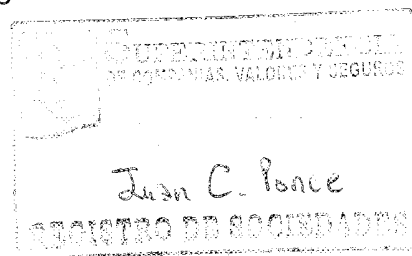 SUPERINTENDENCIA
DE COMPAÑIAS, VALORES Y SEGUROS
Juan C. Ponce
REGISTRO DE SOCIEDADES